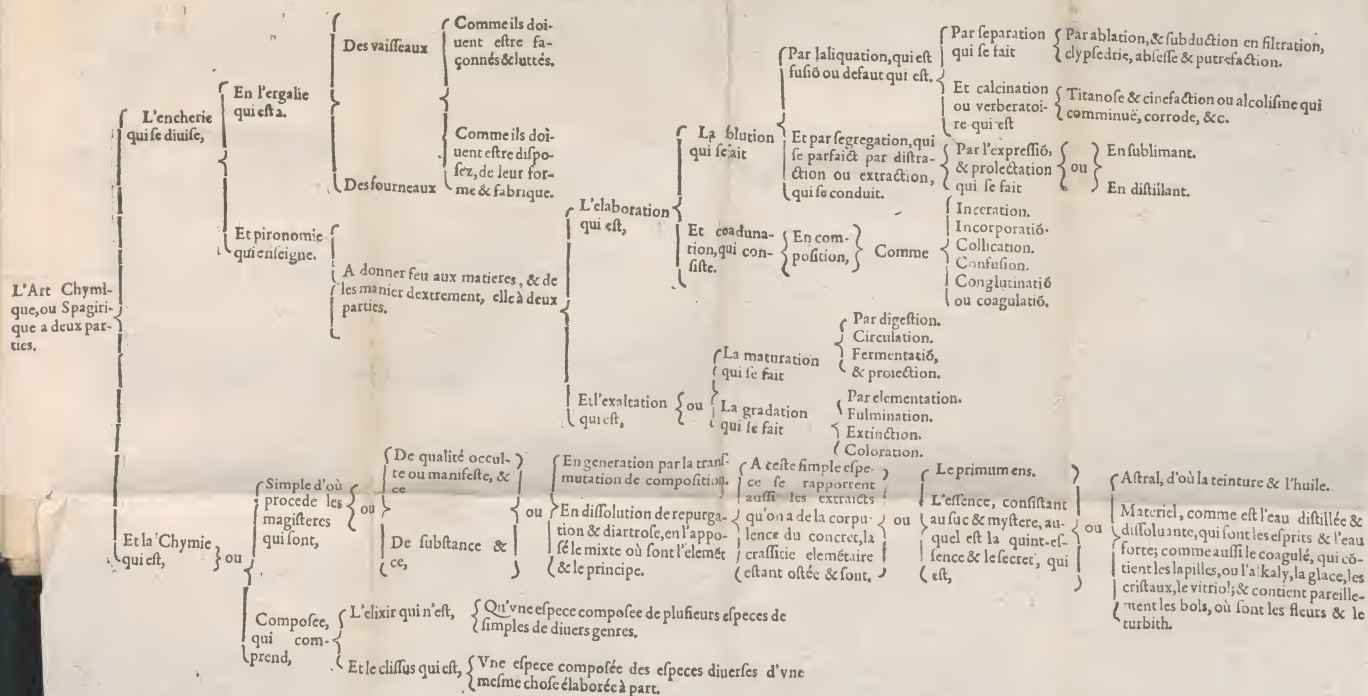 L'Art Chymi-
que, ou Spagiri-
que a deux par-
ties.
L'encherie
qui se diuise,
En l'ergalie
qui est 2.
Des vaiſſeaux
Comme ils doi-
uent eſtre fa-
çonnés & luttés.
Des fourneaux
Comme ils doi-
uent eſtre diſpo-
ſez, de leur for-
me & fabrique.
Et pironomie
qui enſeigne.
A donner feu aux matieres, & de
les manier dextrement, elle à deux
parties.
L'elaboration
qui eſt,
La ſolution
qui ſe fait
Par laliquation, qui eſt
fuſiõ ou defaut qui eſt.
Par ſeparation
qui ſe fait
Par ablation, & ſubduction en filtration,
clypſedrie, abſeſſe & putrefaction.
Et calcination
ou verberatoi-
re qui eſt
Titanoſe & cinefaction ou alcoliſme qui
comminuë, corrode, &c.
Et par ſegregation, qui
ſe parfaict par diſtra-
ction ou extraction,
qui ſe conduit.
Par l'expreſſiõ,
& prolectation
qui ſe fait
ou
En ſublimant.
En diſtillant.
Et coaduna-
tion, qui con-
ſiſte.
En com-
poſition,
Comme
Inceration.
Incorporatiõ.
Collication.
Confuſion.
Conglutinatiõ
ou coagulatiõ.
Et l'exaltation
qui eſt,
ou
La maturation
qui ſe fait
Par digeſtion.
Circulation.
Fermentatiõ,
& proiection.
La gradation
qui ſe fait
Par elementation.
Fulmination.
Extinction.
Coloration.
Et la Chymie
qui eſt,
ou
Simple d'où
procede les
magiſteres
qui ſont,
ou
De qualité occul-
te ou manifeſte, &
ce
De ſubſtance &
ce,
ou
En generation par la tranſ-
mutation de compoſition.
En diſſolution de repurga-
tion & diartroſe, en l'appo-
ſé le mixte où ſont l'elemét
& le principe.
A ceſte ſimple eſpe-
ce ſe rapportent
auſſi les extraicts
qu'on a de la corpu-
lence du concret, la
craſſitie elemétaire
eſtant oſtée & ſont,
ou
Le primum ens.
L'eſſence, conſiſtant
au ſuc & myſtere, au-
quel eſt la quint-eſ-
ſence & le ſecret, qui
eſt,
ou
Aſtral, d'où la teinture & l'huile.
Materiel, comme eſt l'eau diſtillée &
diſſoluante, qui ſont les eſprits & l'eau
forte; comme auſſi le coagulé, qui cõ-
tient les lapilles, ou l'alkaly, la glace, les
criſtaux, le vitriol; & contient pareille-
ment les bols, où ſont les fleurs & le
turbith.
Compoſee,
qui com-
prend,
L'elixir qui n'eſt,
Qu'vne eſpece compoſee de pluſieurs eſpeces de
ſimples de diuers genres.
Et le cliſſus qui eſt,
Vne eſpece compoſée des eſpeces diuerſes d'vne
meſme choſe élaborée à part.